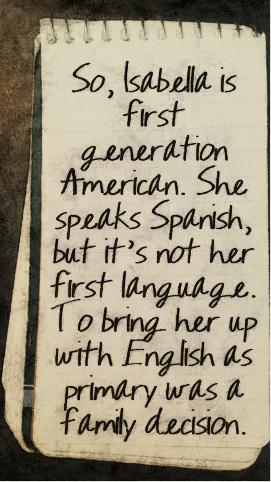 So, Isabella is
first
generation
American. She
speaks Spanish,
but it's not her
first language.
To bring her up
with English as
primary was a
family decision.